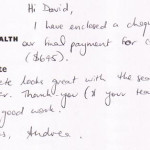 Hi David,
I have enclosed a cheque
ALTH our final payment for c
($695).
te
ete looks great with the sea
er. Thank you (& your tea
good work.
s, Andrea